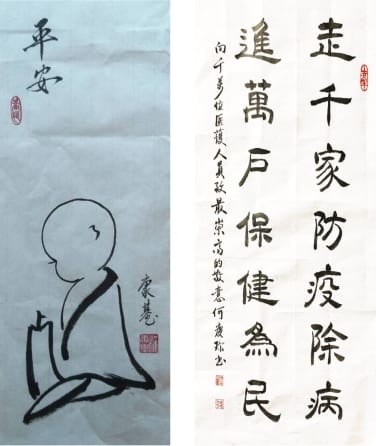 平安
走千家防疫除病
進萬户保健為民
向千萬位医護人員致最崇高的敬意何